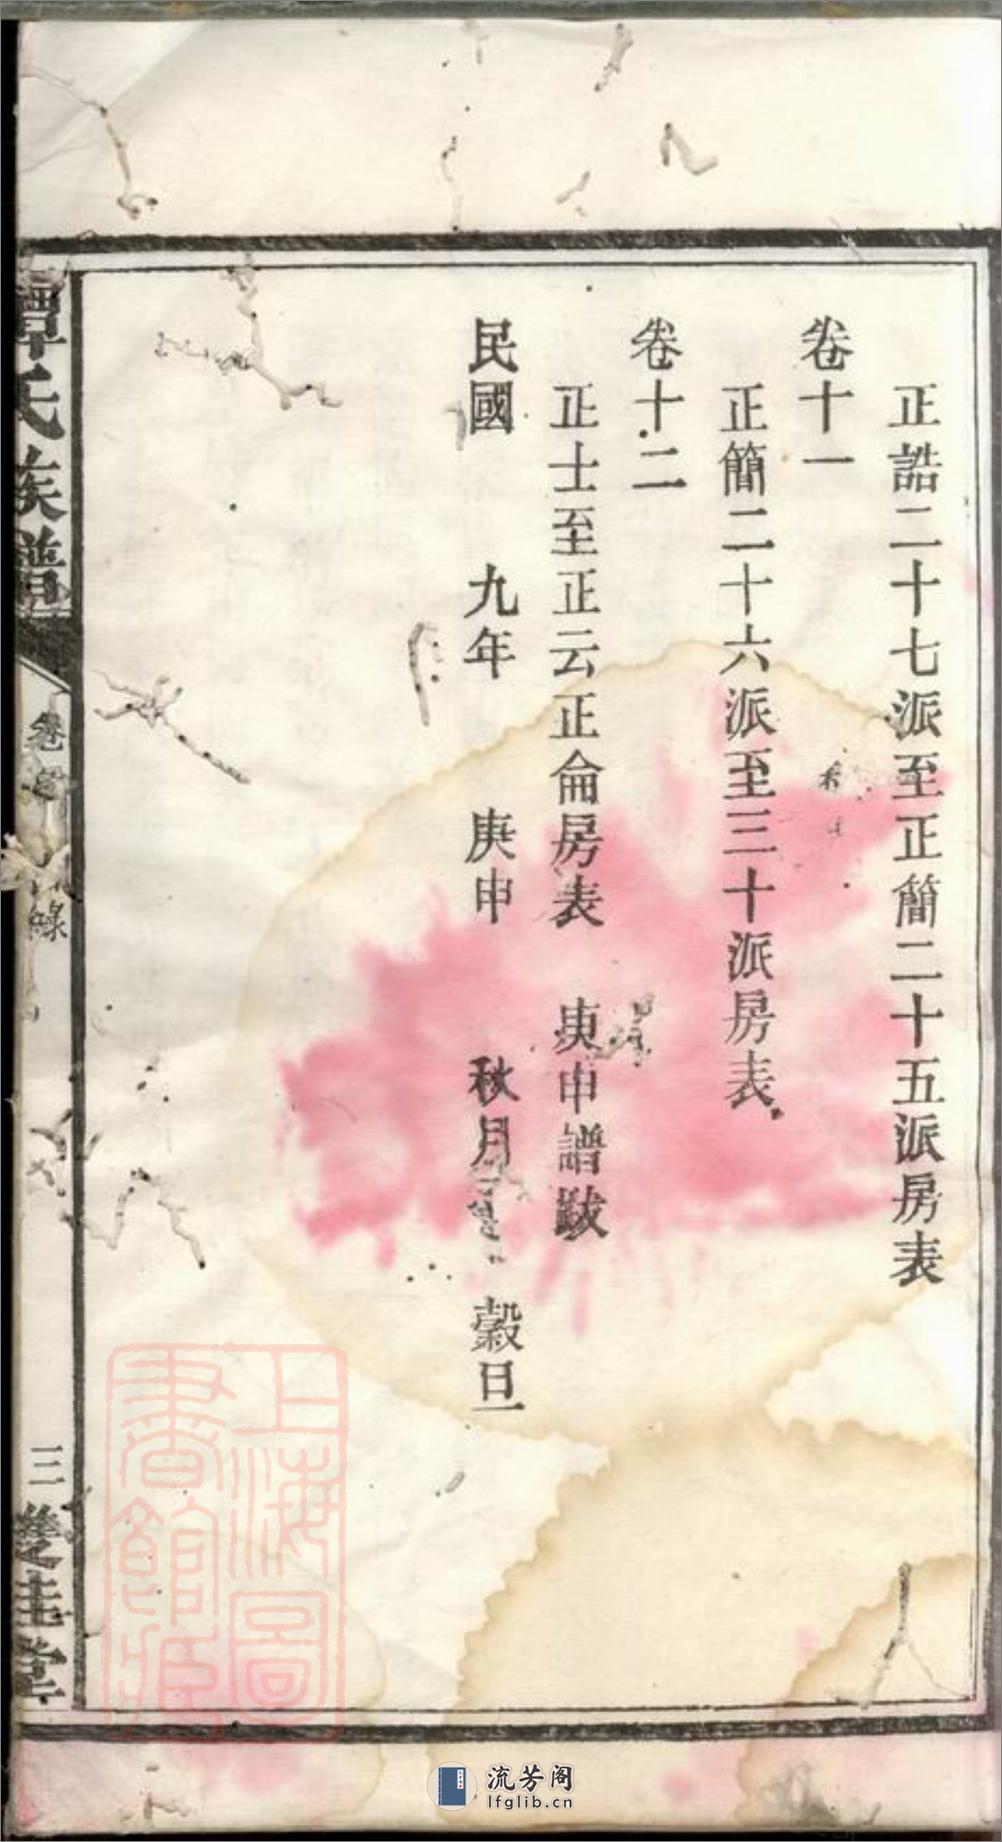 正誥二十七派至正簡二十五派房表
卷十一
正簡二十六派至三十派房表
卷十二
正士至正云正倫房表 庚申譜跋
民國 九年 庚申 秋月 穀旦
譚氏族譜
卷首 錄
三
雙桂堂
上海圖書館藏
流芳阁
lfglib.cn